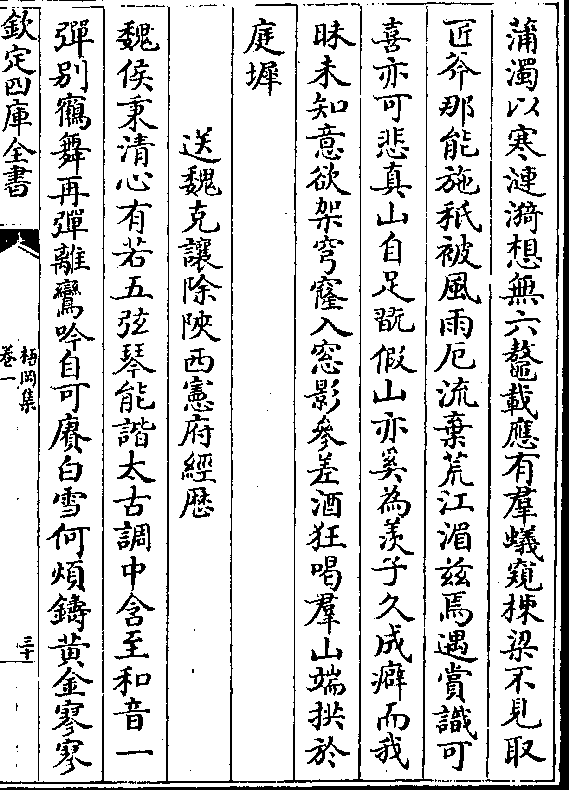 蒲濁以寒漣漪想無六鰲載應有羣蟻窺棟梁不見取
匠斧那能施秖被風雨厄流棄荒江湄兹焉遇賞識可
喜亦可悲真山自足翫假山亦奚為羡子久成癖而我
昧未知意欲架穹窿入窓影參差酒狂喝羣山端拱於
庭墀
送魏克讓除陜西憲府經歴
魏侯秉清心有若五弦琴能諧太古調中含至和音一
彈别鶴舞再彈離鸞吟自可賡白雪何煩鑄黄金寥寥
欽定四庫全書
梧岡集
卷一
三十